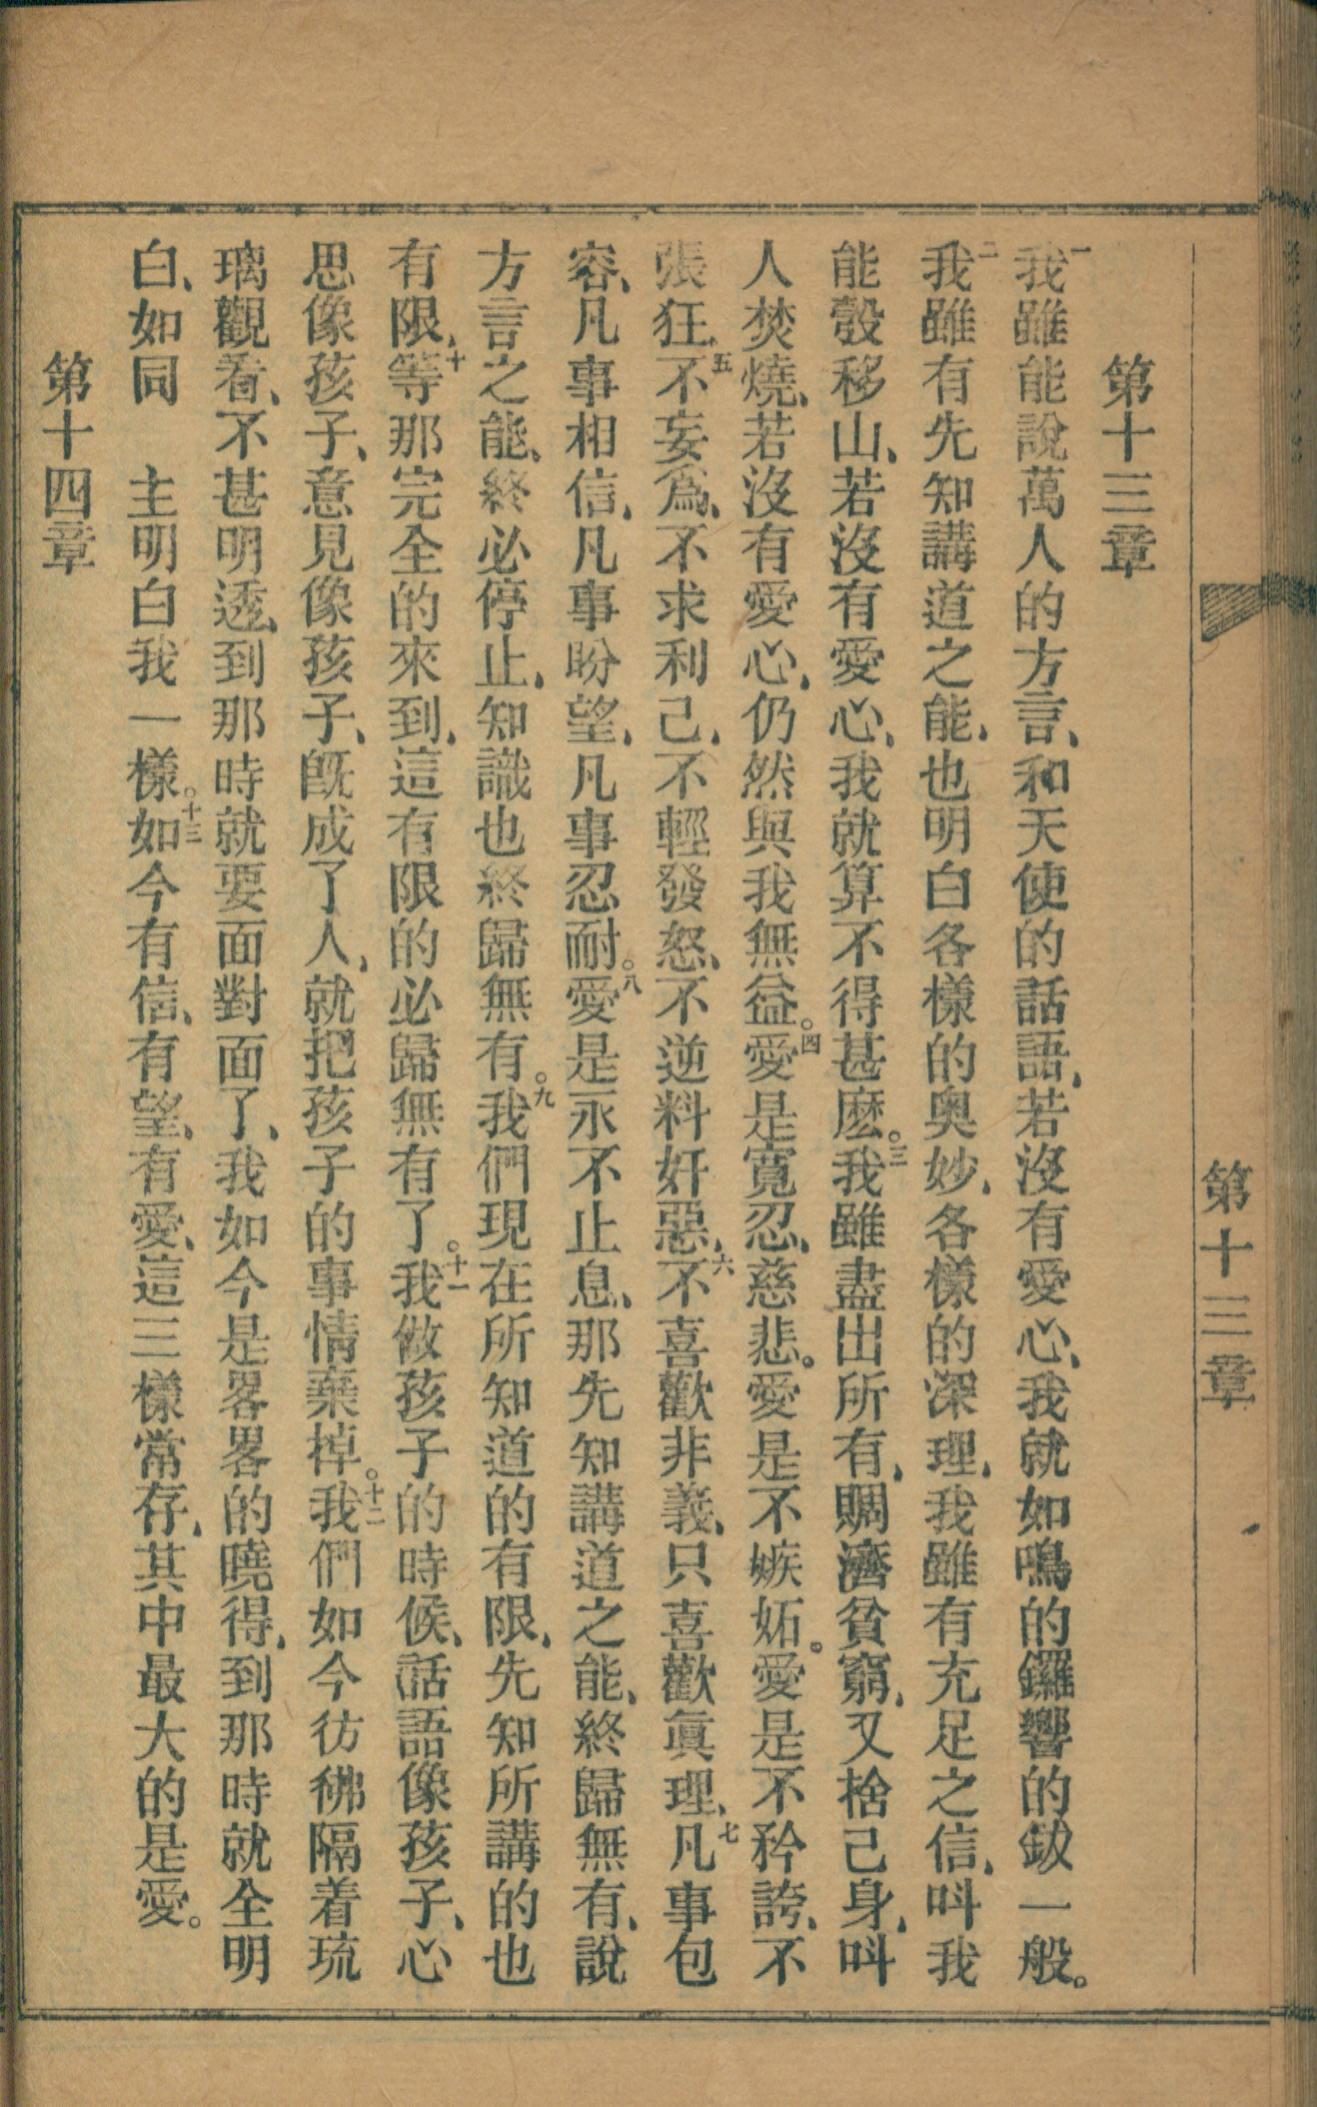 第十三章
第十三章
一我雖能說萬人的方言、和天使的話語、若沒有愛心、我就如鳴的鑼響的鈸一般。
二我雖有先知講道之能、也明白各樣的奧妙、各樣的深理、我雖有充足之信、呌我
能彀移山、若沒有愛心、我就算不得甚麽。三我雖盡出所有、賙濟貧窮、又捨己身、呌
人焚燒、若沒有愛心、仍然與我無益。四愛是寬忍、慈悲。愛是不嫉妬。愛是不矜誇、不
張狂、五不妄爲、不求利己、不輕發怒、不逆料奸惡、六不喜歡非義、只喜歡眞理、七凡事包
容、凡事相信、凡事盼望、凡事忍耐。八愛是永不止息、那先知講道之能、終歸無有、說
方言之能、終必停止、知識也終歸無有。九我們現在所知道的有限、先知所講的也
有限、十等那完全的來到、這有限的必歸無有了。十一我做孩子的時候、話語像孩子、心
思像孩子、意見像孩子、旣成了人、就把孩子的事情棄掉。十二我們如今彷彿隔着琉
璃觀看、不甚明透、到那時就要面對面了、我如今是畧畧的曉得、到那時就全明
白、如同　主明白我一樣。十三如今有信、有望、有愛、這三樣常存、其中最大的是愛。
第十四章